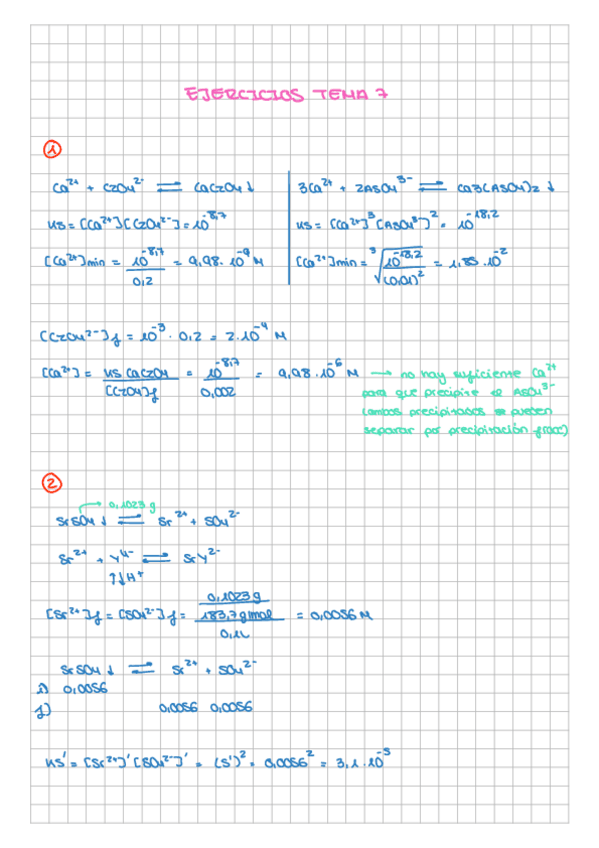 EJERCICIOS TEMA 7
1
Ca²⁺ + C2O4²⁻ ⇌ CaC2O4 ↓
KS = [Ca²⁺][C2O4²⁻] = 10^-8,7
[Ca²⁺]min = 10^-8,7 / 0,2 = 9,98 · 10^-9 M
3Ca²⁺ + 2AsO4³⁻ ⇌ Ca3(AsO4)2 ↓
KS = [Ca²⁺]³ [AsO4³⁻]² = 10^-18,2
[Ca²⁺]min = ³√(10^-18,2 / (0,01)²) = 1,85 · 10^-2
[C2O4²⁻]f = 10^-3 · 0,2 = 2 · 10^-4 M
[Ca²⁺] = KS CaC2O4 / [C2O4]f = 10^-8,7 / 0,002 = 9,98 · 10^-6 M → no hay suficiente Ca²⁺
para que precipite el AsO4³⁻
(ambos precipitados se pueden
separar por precipitación fracc)
2
→ 0,1023 g
SrSO4 ↓ ⇌ Sr²⁺ + SO4²⁻
Sr²⁺ + Y⁴⁻ ⇌ SrY²⁻
↑↓H⁺
[Sr²⁺]f = [SO4²⁻]f = 0,1023 g / 183,7 g/mol / 0,1L = 0,0056 M
SrSO4 ↓ ⇌ Sr²⁺ + SO4²⁻
i) 0,0056
f) 0,0056 0,0056
KS' = [Sr²⁺]' [SO4²⁻]' = (S')² = 0,0056² = 3,1 · 10^-5